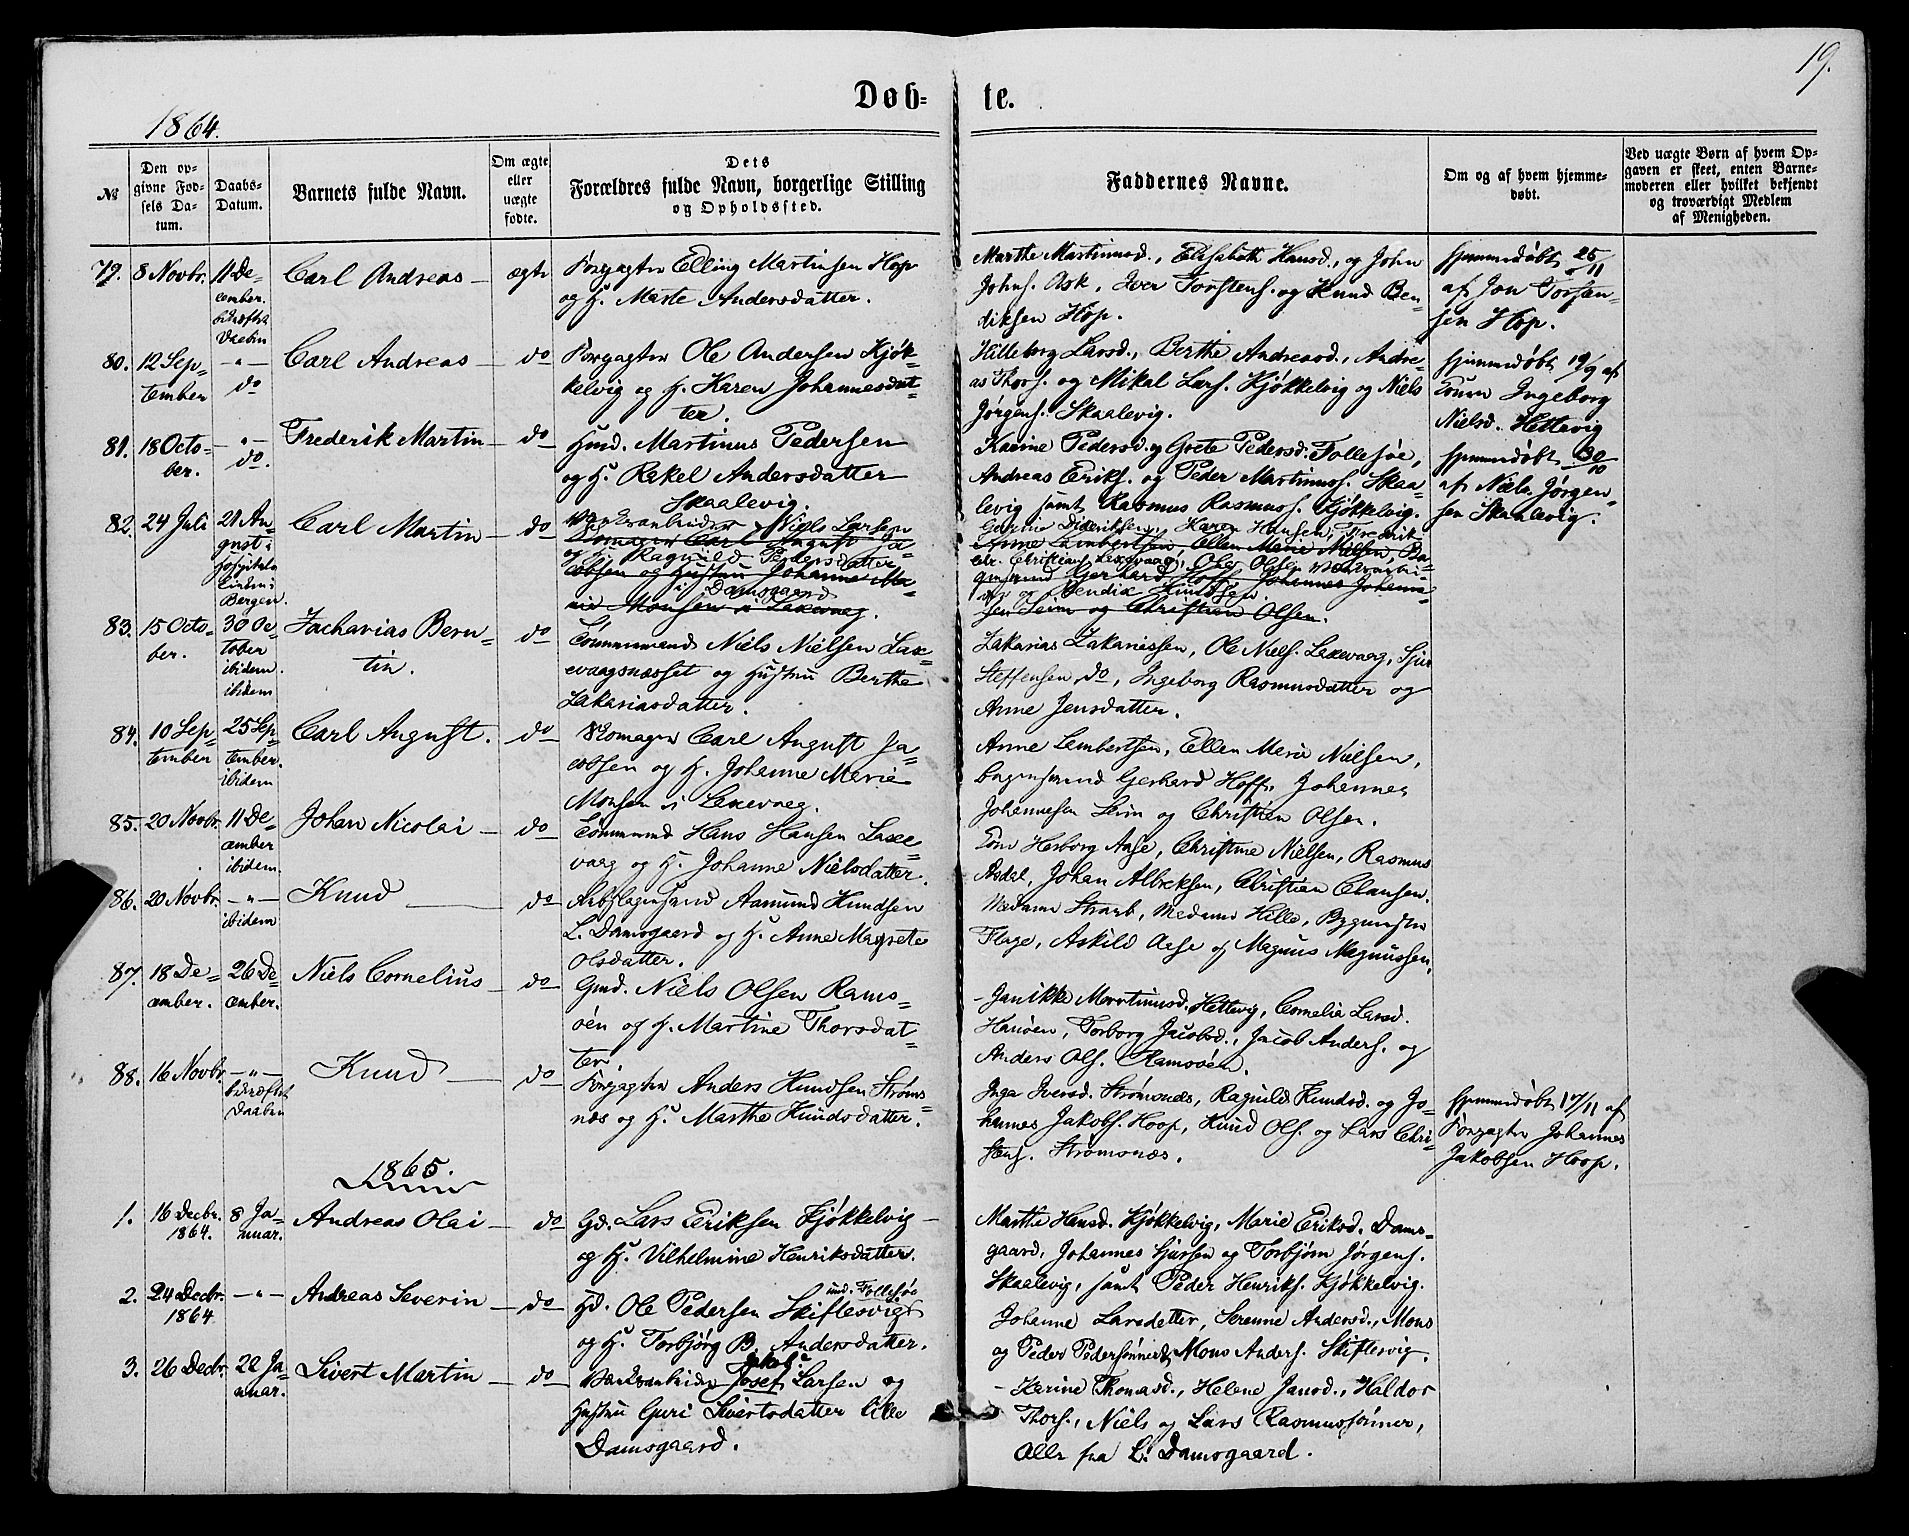 19.
Døb- te.
1864.
№
Den op-
givne Fød-
sels Da-
tum.
Daabs-
Datum.
Barnets fulde Navn.
Om ægte
eller
uægte
fødte.
Dets
Forældres fulde Navn, borgerlige Stilling
og Opholdssted.
Faddernes Navne.
Om og af hvem hjemme-
døbt.
Ved uægte Børn af hvem Op-
gaven er skeet, enten Barne-
moderen eller hvilket bekjendt
og troværdigt Medlem
af Menigheden.
79. 8 Novbr.
11 De-
cember.
bekræftet
Daabin
Carl Andreas
ægte
Forpagter Elling Martinsen Hop
og H. Marte Andersdatter.
Marthe Martinusd., Elisabeth Hansd., og John
Johns. Ask, Iver Torstens. og Knud Ben-
diksen Hop.
hjemmedøbt 25/11
af Jon Torsen-
sen Hop.
80. 12 Sep-
tember
-"-
do
Carl Andreas
do
Forpagter Ole Andersen Kjøk-
kelvig og H. Karen Johannesdat-
ter.
Hilleborg Larsd., Berthe Andreasd., Andre-
as Thors. og Mikal Lars. Kjøkkelvig og Niels
Jørgens. Skaalevig.
hjemmedøbt 19/9 af
Konen Ingeborg
Nielsd. Hettevig
81. 18 Octo-
ber.
-"-
do.
Frederik Martin
do
Husd. Martinus Pedersen
og H. Rakel Andersdatter
Skaalevig.
Karine Pedersd. og Grete Pedersd. Follesøe,
Andreas Eriks. og Peder Martinuss. Skaa-
levig samt Rasmus Rasmuss. Kjøkkelvig.
hjemmedøbt 30/10
af Niels Jørgen-
sen Skaalevig.
82. 24 Juli
21 Au-
gust i
Hospitals
Kirken i
Bergen.
Carl Martin
do
Værksarbeider Niels Larsen
Skomager Carl August Ja-
og H. Ragnild Pedersdatter
cobsen og Hustru Johanne Ma-
Damsgaard
rie Monsen i Laxevaag.
Gurine Dideriksen, Karen Hansen, Fredrik
Anne Lambertsen, Ellen Marie Nielsen, Ba-
Chr. Christian Laxevaag, Ole Olsen Værksarbei-
gersvend Gerhard Hoff, Johannes Johanne-
der og Bendix Knudsen.
sen Leim og Christian Olsen.
83. 15 Octo-
ber.
30 Oc-
tober
ibidem.
ibidem
Zacharias Bern-
tin.
do
Tømmermand Niels Nielsen Lax-
evaagsnæsset og Hustru Berthe
Zakariasdatter.
Zakarias Zakariassen, Ole Niels. Laxevaag, Sjur
Steffensen, do, Ingeborg Rasmusdatter og
Anne Jensdatter.
84. 10 Sep-
tember
25 Sep-
tember.
ibidem
Carl August.
do
Skomager Carl August Ja-
cobsen og H. Johanne Marie
Monsen i Laxevaag.
Anne Lambertsen, Ellen Marie Nielsen,
Bagersvend Gerhard Hoff, Johannes
Johannesen Leim og Christian Olsen.
85. 20 Novbr.
11 De-
cember
ibidem.
Johan Nicolai
do
Tømmermd Hans Hansen Laxe-
vaag og H. Johanne Nielsdatter.
Kone Herborg Aase, Christine Nielsen, Rasmus
Asdal, Johan Albrektsen, Christian Clausen.
86. 20 Novbr.
-"-
ibidem
Knud
do
Aamund Knudsen
L. Damsgaard og H. Anne Magrete
Olsdatter.
Madame Straub, Madame Hille, Bygmester
Flage, Askild Aase og Magnus Magnussen.
87. 18 De-
cember.
26 De-
cember.
Niels Cornelius
do
Gmd. Niels Olsen Rams-
öen og H. Martine Thorsdat-
ter.
Janikke Martinusd. Hettevig, Cornelia Larsd.
Hanöen, Torborg Jacobsd., Jacob Anders. og
Anders Ols. Ramsöen.
88. 16 Novbr.
-"-
bekræftet
Daaben
Knud
do
Forpagter Anders Knudsen Strøms-
næs og H. Marthe Knudsdatter.
Inga Iversd. Strømsnæs, Ragnild Knudsd. og Jo-
hannes Jakobs. Hoop, Knud Ols. og Lars Chri-
stens. Strømsnæs.
hjemmedøbt 17/11 af
Forpagter Johannes
Jakobsen Hoop.
1865.
1. 16 Decbr.
1864.
8 Ja-
nuar.
Andreas Olai
do
Gd. Lars Eriksen Kjøkkelvig
og H. Vilhelmine Henriksdatter.
Marthe Hansd. Kjøkkelvig, Marie Eriksd. Dams-
gaard, Johannes Sjursen og Torbjørn Jørgens.
Skaalevig, samt Peder Henriks. Kjøkkelvig.
2. 24 Decbr.
1864
-"-
Andreas Severin
do
und. Follesøe
Hd. Ole Pedersen Skiftesvig
og H. Torbjørg B. Andersdatter.
Johanne Larsdatter, Serenne Andersd., Mons
og Peder Pedersønner, Mons Anders. Skiftesvig.
3. 26 Decbr.
22 Ja-
nuar.
Sivert Martin
do
Jakob
Værksarbeider Josef Larsen og
Hustru Guri Sivertsdatter lille
Damsgaard.
Karine Thomasd., Helene Jansd., Haldor
Thors., Niels og Lars Rasmussønner,
Alle fra L. Damsgaard.